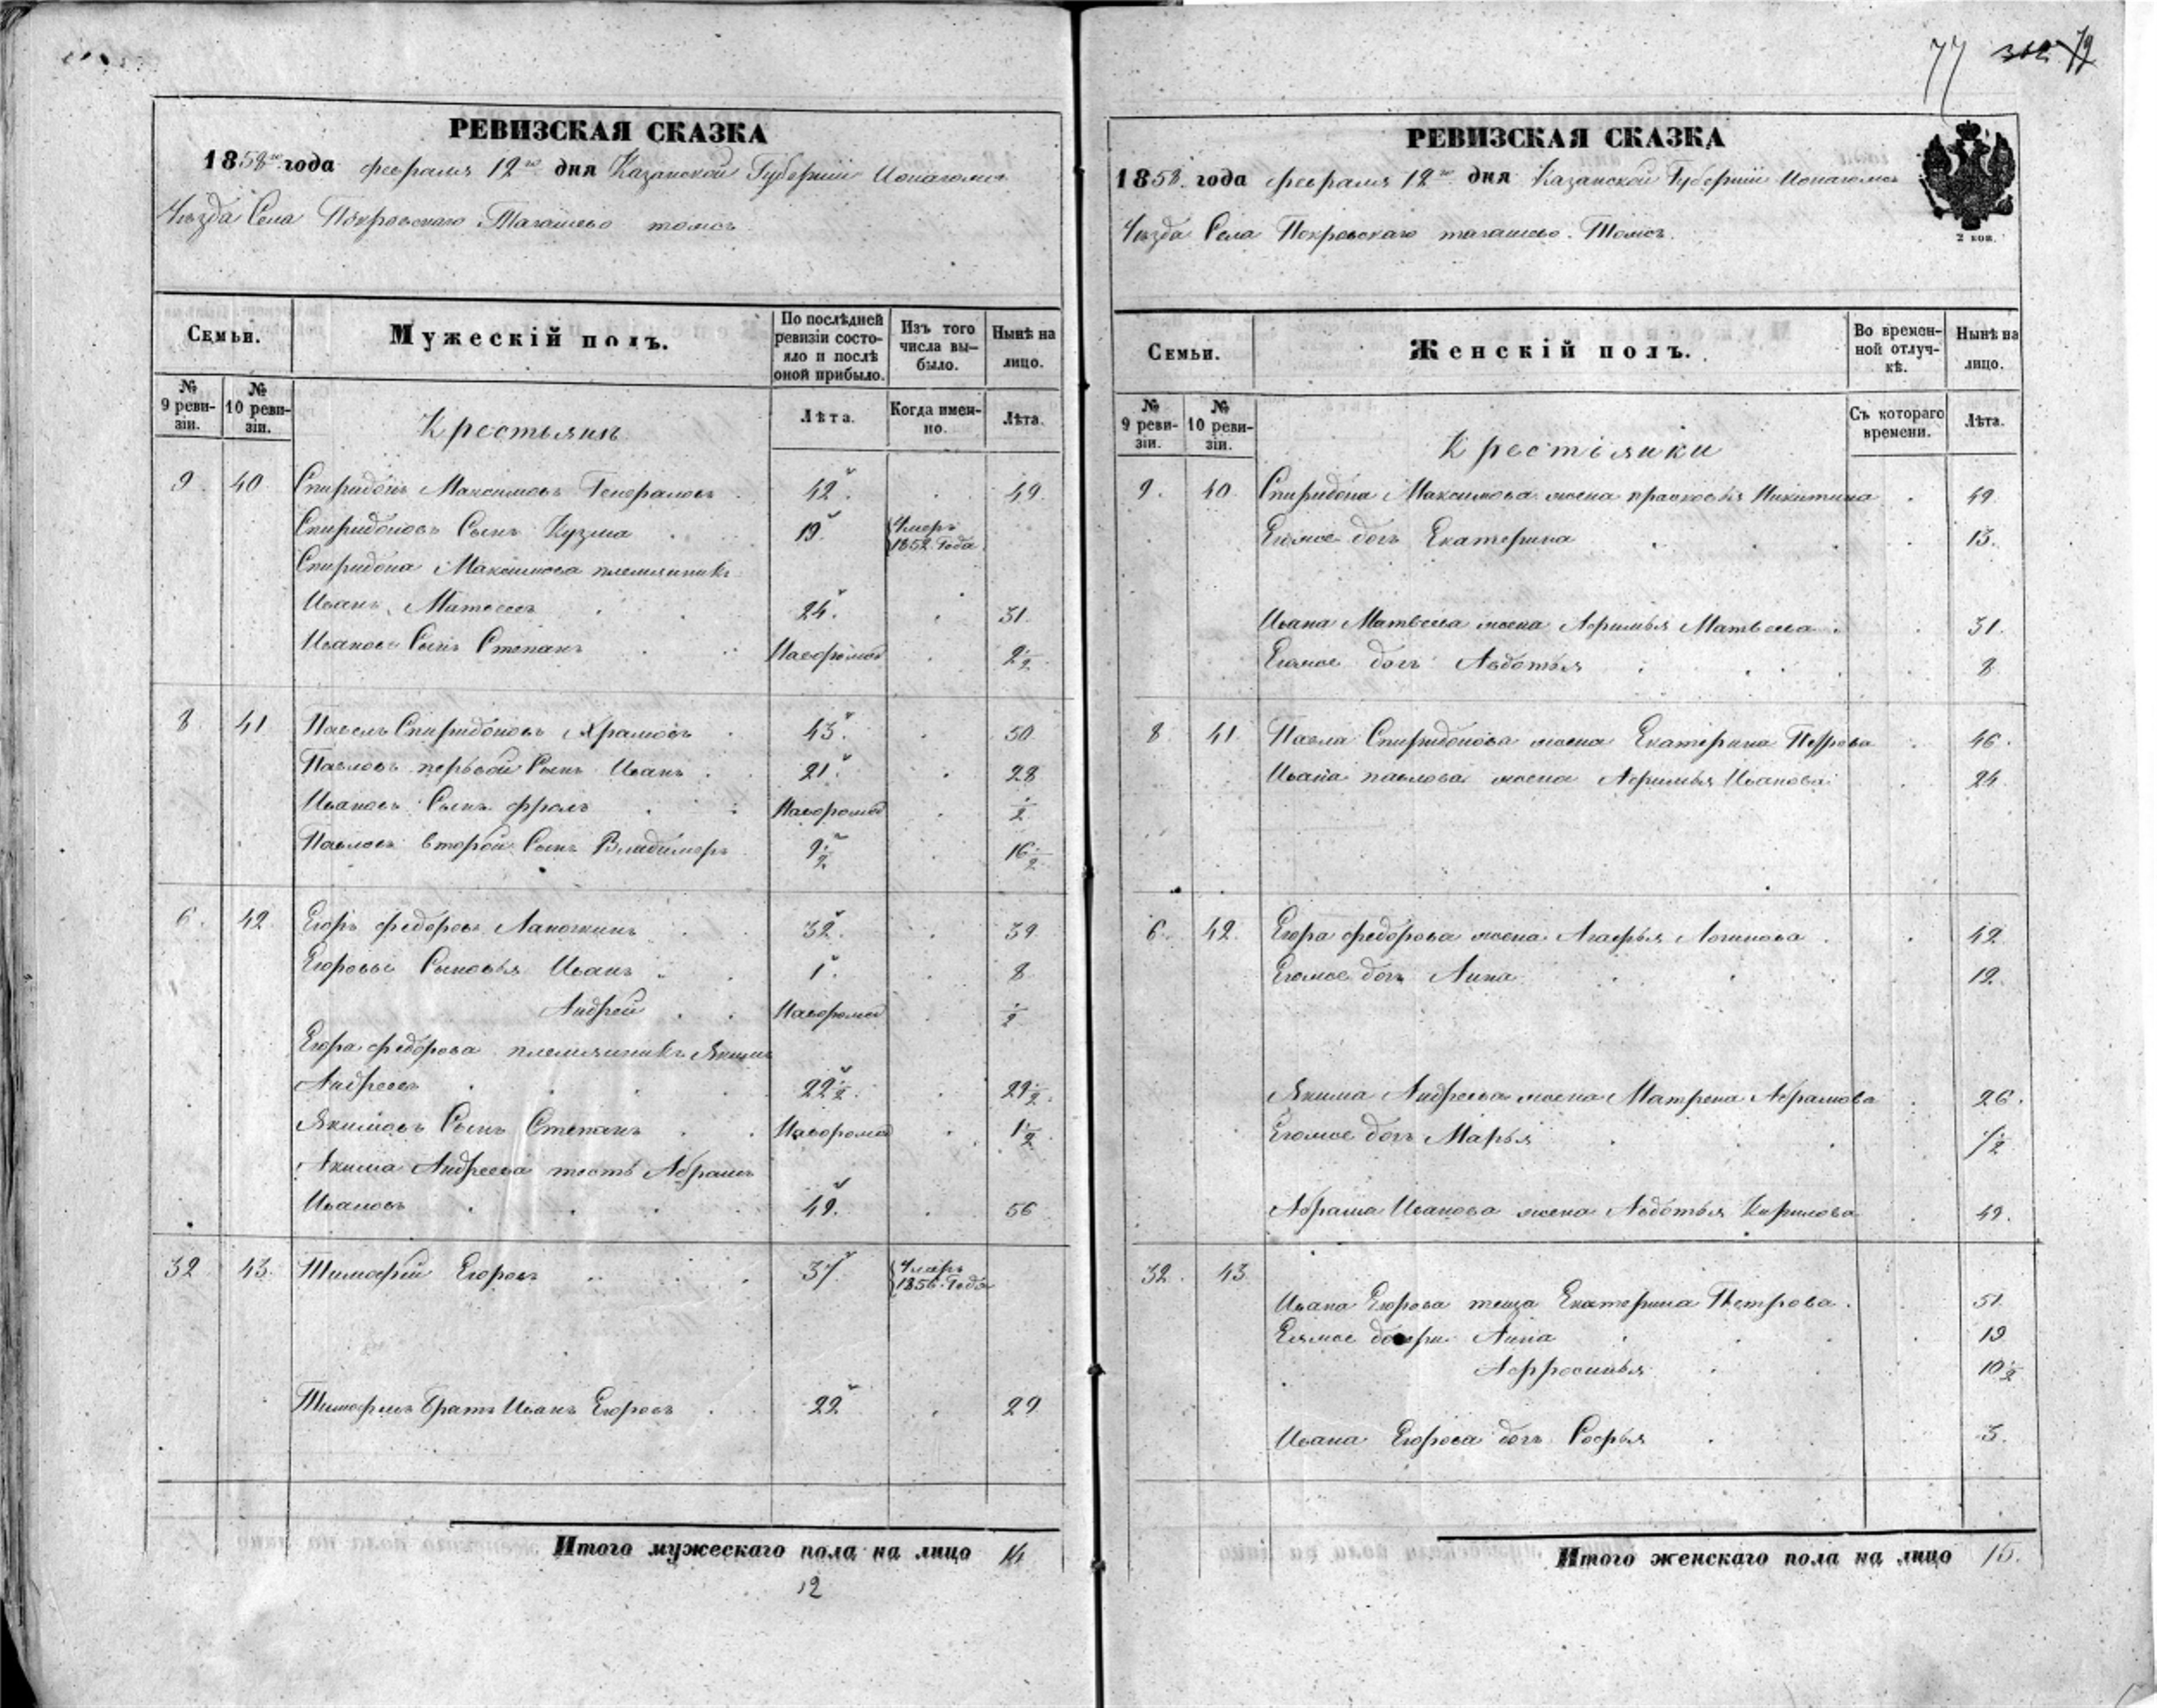 77 72
РЕВИЗСКАЯ СКАЗКА
1858го года февраля 12го дня Казанской Губернии
Уѣзда Села Покровскаго Тагашево тожъ
Семьи.
Мужескій полъ.
По послѣдней ревизіи состояло и послѣ оной прибыло.
Изъ того числа выбыло.
Нынѣ на лицо.
№ 9 ревизіи.
№ 10 ревизіи.
Крестьянъ
Лѣта.
Когда именно.
Лѣта.
9. 40 Спиридонъ Максимовъ 42. 49.
Спиридоновъ Сынъ Кузма 19. Умеръ 1852 Года
Спиридона Максимова племянникъ
Иванъ Матвеевъ 24. 31.
Ивановъ Сынъ Степанъ Новорожд 2½
8 41 Павелъ Спиридоновъ Храмовъ 43. 50
Павловъ первой Сынъ Иванъ 21. 28
Ивановъ Сынъ Фролъ Новорожд ½
Павловъ второй Сынъ Владимеръ 9½ 16½
6. 42. Егоръ Федоровъ 32. 39
Егоровы Сыновья Иванъ 1. 8
Андрей Новорожд ½
Егора Федорова племянникъ Якимъ
Андреевъ 22½. 29½.
Якимовъ Сынъ Степанъ Новорожд 1½
Акима Андреева тесть Абрамъ
Ивановъ 49. 56
32 43. Тимофей Егоровъ 37 Умеръ 1856 Года
Тимофеевъ братъ Иванъ Егоровъ 22 29
Итого мужескаго пола на лицо 14
12
РЕВИЗСКАЯ СКАЗКА
1858. года февраля 12го дня Казанской Губернии
Уѣзда Села Покровскаго тагашево Тожъ.
2 коп.
Семьи.
Женскій полъ.
Во временной отлучкѣ.
Нынѣ на лицо.
№ 9 ревизіи.
№ 10 ревизіи.
Крестьянки
Съ котораго времени.
Лѣта.
9. 40. Спиридона Максимова жена прасковья Никитина 49.
Егожѣ дочь Екатерина 13.
Ивана Матвеева жена Афимья Матвеева 31.
Егожѣ дочь Авдотья 8
8. 41 Павла Спиридонова жена Екатерина Петрова 46.
Ивана павлова жена Афимья Иванова 24
6. 42. Егора Федорова жена Агафья Логинова 42
Егожѣ дочь Анна 12.
Якима Андреева жена Матрена Абрамова 26.
Егожѣ дочь Марья ½
Абрама Иванова жена Авдотья Кирилова 49.
32. 43
Ивана Егорова теща Екатерина Петрова 51
Еяжѣ дочери Анна 19
Афросинья 10½
Ивана Егорова дочь Софья 3.
Итого женскаго пола на лицо 15.